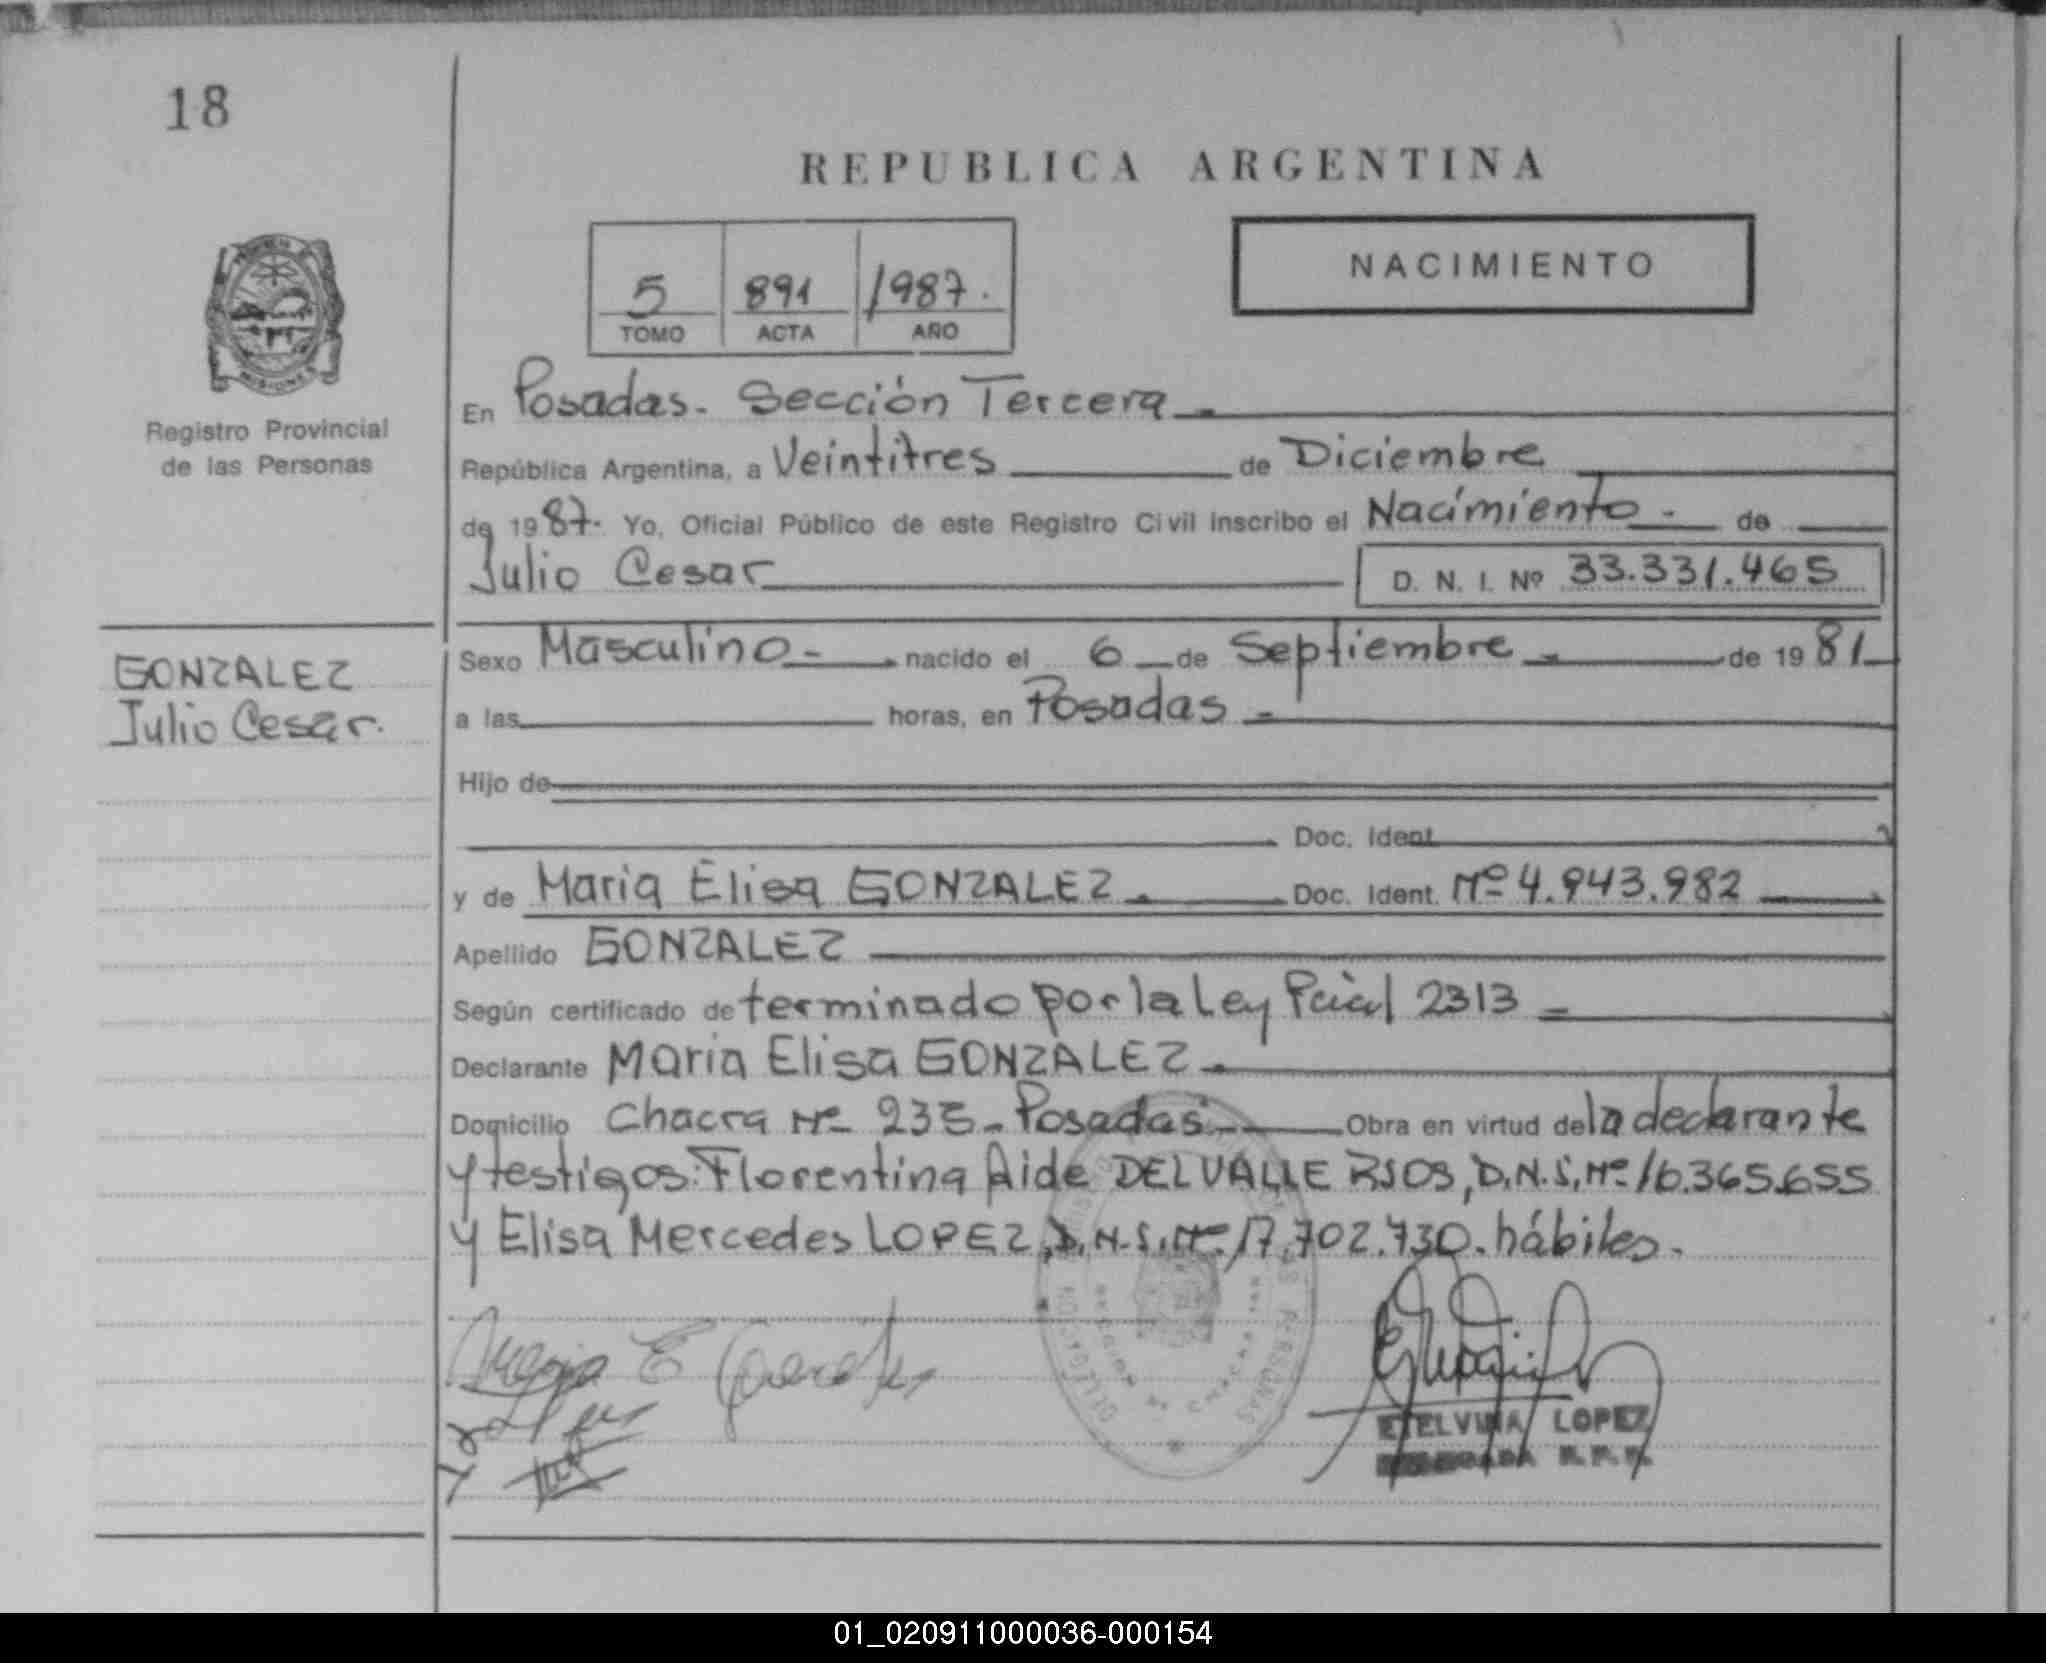 18
REPUBLICA ARGENTINA
NACIMIENTO
5 891 1987.
TOMO ACTA AÑO
Registro Provincial
de las Personas
MISIONES
En Posadas. Sección Tercera
República Argentina, a Veintitres de Diciembre
de 1987. Yo, Oficial Público de este Registro Civil inscribo el Nacimiento - de
Julio Cesar D. N. I. Nº 33.331.465
GONZALEZ
Julio Cesar.
Sexo Masculino - nacido el 6 de Septiembre de 1981
a las horas, en Posadas -
Hijo de
Doc. Ident.
y de Maria Elisa GONZALEZ Doc. Ident. Nº 4.943.982
Apellido GONZALEZ
Según certificado determinado por la Ley Pcial 2313
Declarante Maria Elisa GONZALEZ
Domicilio Chacra Nº 235 - Posadas Obra en virtud de la declarante
y testigos: Florentina Aide DELVALLE RIOS, D.N.I. Nº 16.365.655
y Elisa Mercedes LOPEZ, D.N.I. Nº 17.702.730. hábiles.
Maria E
ETELVINA LOPEZ
01_020911000036-000154